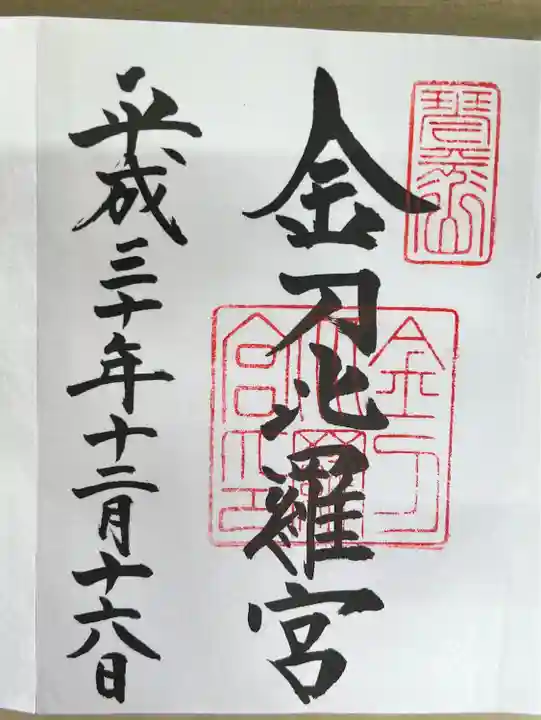 琴平山
金刀比羅宮
金刀比羅宮之印
平成三十年十二月十六日